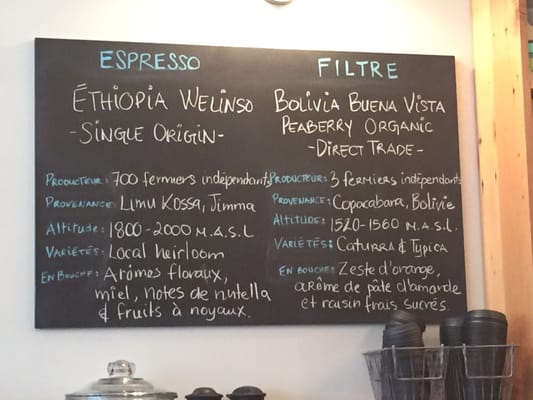 ESPRESSO
ÉTHIOPIA WELINSO
- SINGLE ORIGIN -
PRODUCTEUR: 700 fermiers indépendants
PROVENANCE: LIMU KOSSA, JIMMA
Altitude: 1800-2000 M.A.S.L
VARIÉTÉS: Local heirloom
EN BOUCHE: Arômes floraux,
miel, notes de nutella
& fruits à noyaux.
FILTRE
BOLIVIA BUENA VISTA
PEABERRY ORGANIC
- DIRECT TRADE -
PRODUCTEURS: 3 fermiers indépendants
PROVENANCE: Copacabara, Bolivie
ALTITUDE: 1520-1560 M.A.S.L.
VARIÉTÉS: CATURRA & TYPICA
EN BOUCHE: Zeste d'orange,
arôme de pâte d'amande
et raisin frais sucrés.